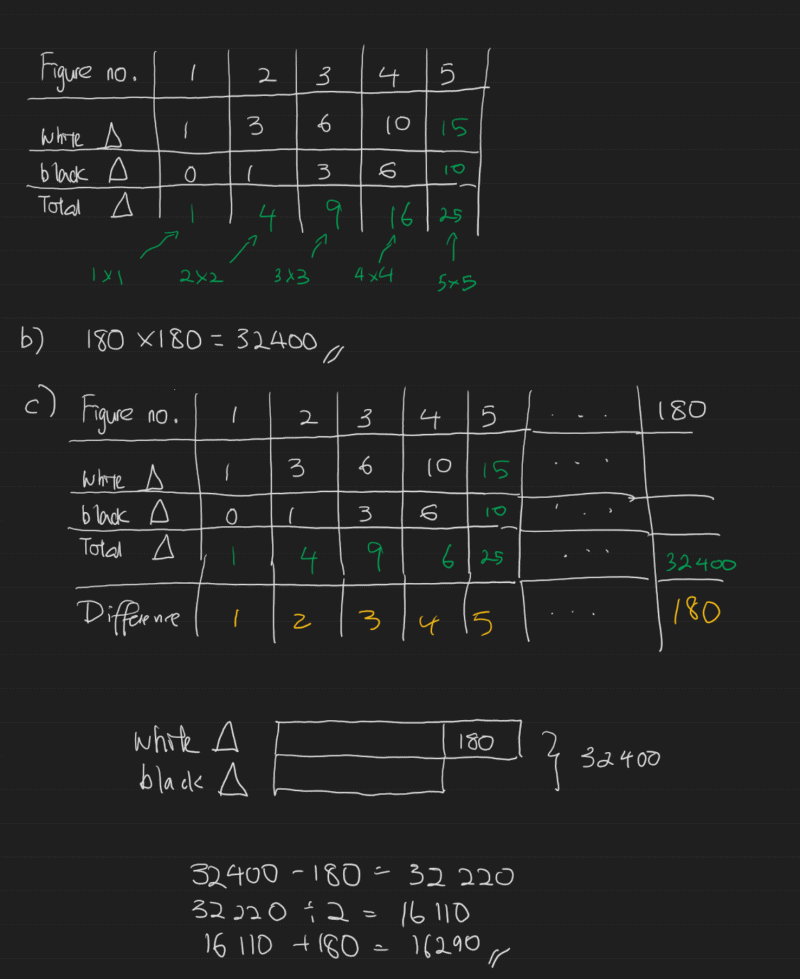 Figure no. 1 2 3 4 5
white Δ 1 3 6 10 15
black Δ 0 1 3 6 10
Total Δ 1 4 9 16 25
1x1 2x2 3x3 4x4 5x5
b) 180 x 180 = 32400
c) Figure no. 1 2 3 4 5 ... 180
white Δ 1 3 6 10 15 ...
black Δ 0 1 3 6 10 ...
Total Δ 1 4 9 6 25 ... 32400
Difference 1 2 3 4 5 ... 180
white Δ 180 } 32400
black Δ
32400 - 180 = 32 220
32 220 ÷ 2 = 16 110
16 110 + 180 = 16290